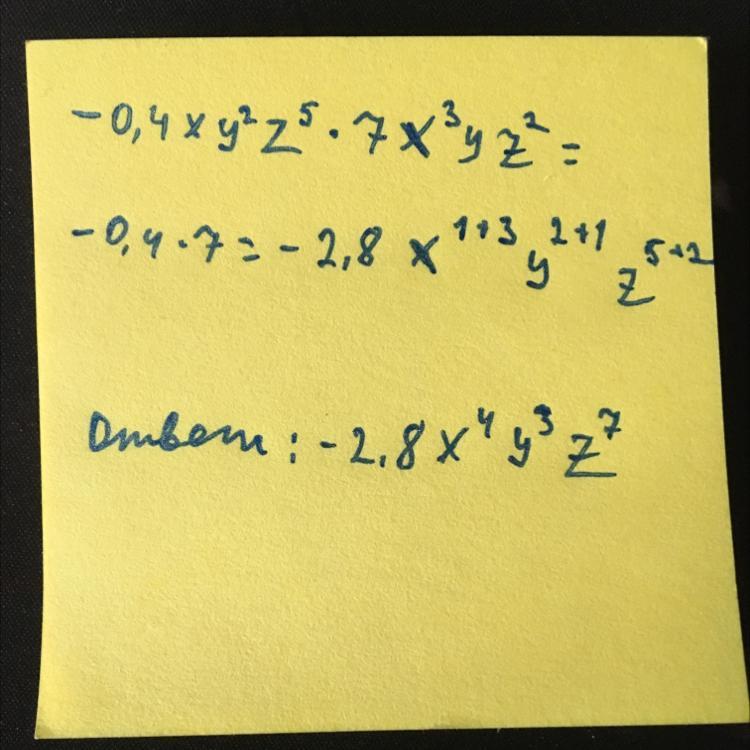 -0,4xy²z⁵·7x³yz²=
-0,4·7=-2,8 x¹⁺³y²⁺¹z⁵⁺²
Ответ: -2,8x⁴y³z⁷